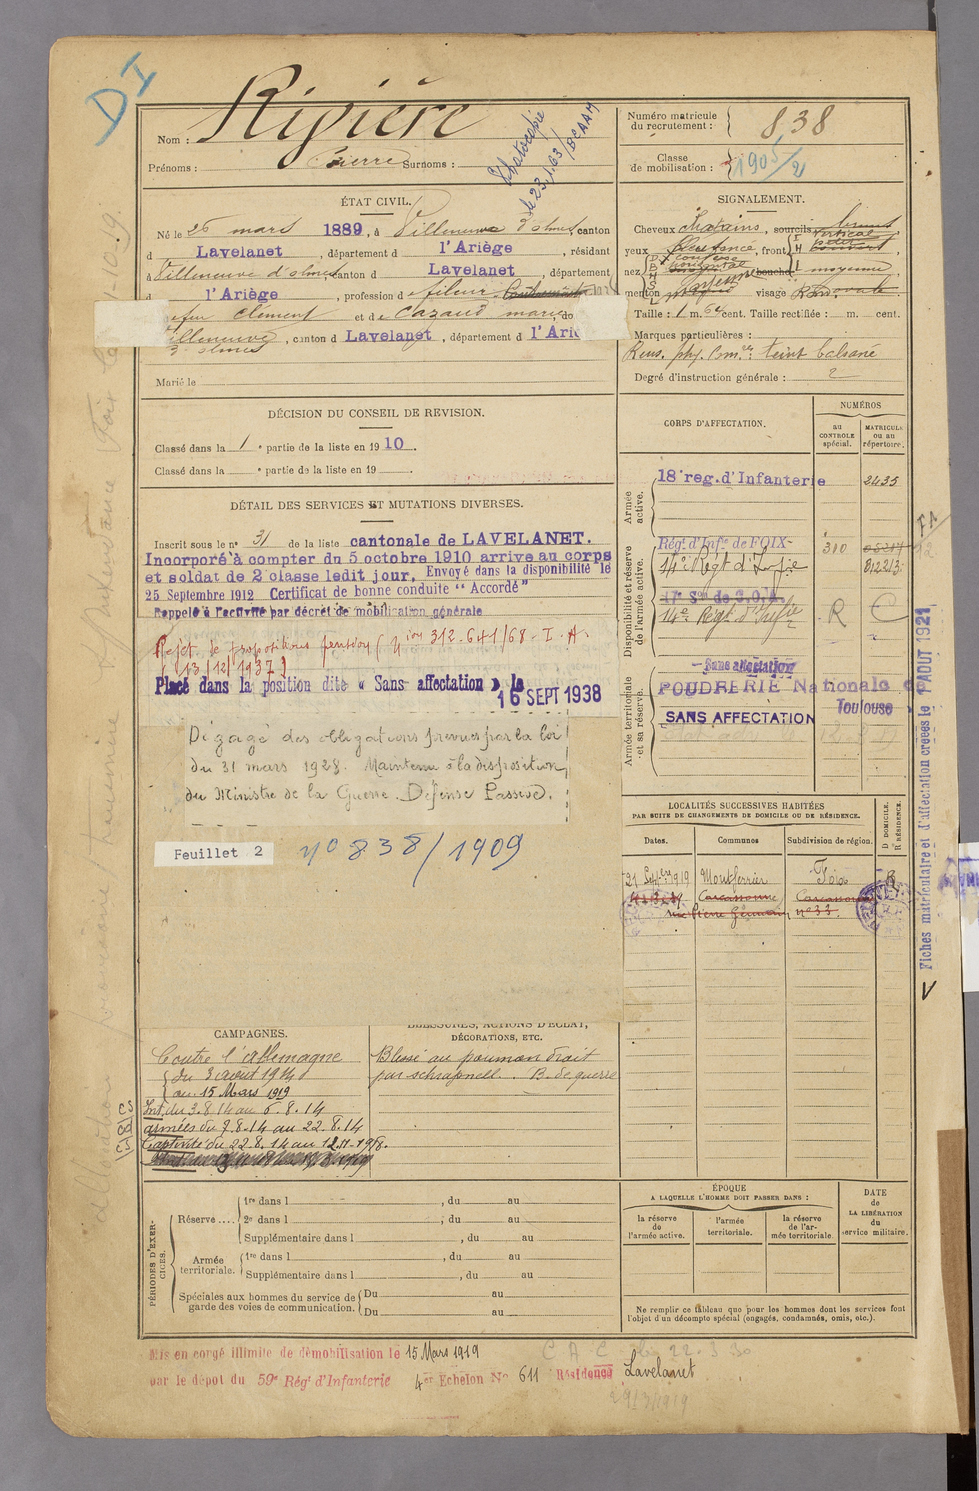 DI
Nom : Ripière
Prénoms : Pierre Surnoms :
Photocopie
le 23.1.63 / BCAAM
Numéro matricule du recrutement : 838
Classe de mobilisation : 1905/2
ÉTAT CIVIL.
Né le 25 mars 1889, à Villeneuve d'olmes canton
d Lavelanet, département d l'Ariège, résidant
à Villeneuve d'olmes canton d Lavelanet, département
d l'Ariège, profession d e fileur
Clément et de Cazaud marie, do
Villeneuve d'olmes, canton d Lavelanet, département d l'Arié
Marié le
SIGNALEMENT.
Cheveux chatains, sourcils bruns
yeux, front
nez, bouche moyenne,
menton, visage ovale
Taille : 1 m. 64 cent. Taille rectifiée : m. cent.
Marques particulières :
Rens. phy. Com.res : teint basané
Degré d'instruction générale : 2
DÉCISION DU CONSEIL DE REVISION.
Classé dans la 1e partie de la liste en 1910.
Classé dans la e partie de la liste en 19 .
DÉTAIL DES SERVICES ET MUTATIONS DIVERSES.
Inscrit sous le n° 31 de la liste cantonale de LAVELANET.
Incorporé à compter du 5 octobre 1910 arrivé au corps
et soldat de 2 classe ledit jour. Envoyé dans la disponibilité le
25 Septembre 1912 Certificat de bonne conduite "Accordé"
Rappelé à l'activité par décret de mobilisation générale
Rejet de propositions pension (Dion 312.641/68-I.A.
(13/12/1937)
Placé dans la position dite « Sans affectation » le
16 SEPT 1938
Dégagé des obligations prévues par la loi
du 31 mars 1928. Maintenu à la disposition
du Ministre de la Guerre. Défense Passive.
Feuillet 2 n° 838/1909
CORPS D'AFFECTATION.
NUMÉROS
au CONTROLE spécial.
MATRICULE ou au répertoire.
Armée active.
18e reg. d'Infanterie 2435
Disponibilité et réserve de l'armée active.
Régt d'Infie de FOIX 310
14e Régt d'Infie 812213
17e Son de C.O.A.
14e Régt d'Infie R C
Armée territoriale et sa réserve.
Sans affectation
POUDRERIE Nationale de
Toulouse
SANS AFFECTATION
Fiches matriculaire et d'affectation créées le 1 AOUT 1921
LOCALITÉS SUCCESSIVES HABITÉES
PAR SUITE DE CHANGEMENTS DE DOMICILE OU DE RÉSIDENCE.
Dates. Communes Subdivision de région. D DOMICILE. R RÉSIDENCE.
21 Septbre 1919 Montferrier Foix R
Carcassonne Carcassonne
rue Pierre Germain n° 33.
CAMPAGNES.
Contre l'Allemagne
du 3 août 1914
au 15 Mars 1919
Int. du 3.8.14 au 6.8.14
armées du 7.8.14 au 22.8.14
Captivité du 22.8.14 au 12.11.1918.
BLESSURES, ACTIONS D'ÉCLAT,
DÉCORATIONS, ETC.
Blessé au poumon droit
par schrapnell. B. de guerre
PÉRIODES D'EXERCICES.
Réserve .... 1re dans l , du au
2e dans l , du au
Supplémentaire dans l , du au
Armée territoriale. 1re dans l , du au
Supplémentaire dans l , du au
Spéciales aux hommes du service de garde des voies de communication. Du au
Du au
ÉPOQUE
A LAQUELLE L'HOMME DOIT PASSER DANS :
la réserve de l'armée active.
l'armée territoriale.
la réserve de l'armée territoriale.
DATE de LA LIBÉRATION du service militaire.
Ne remplir ce tableau que pour les hommes dont les services font
l'objet d'un décompte spécial (engagés, condamnés, omis, etc.).
Mis en congé illimité de démobilisation le 15 Mars 1919
par le dépôt du 59e Régt d'Infanterie 4er Echelon No 611 Résidence Lavelanet